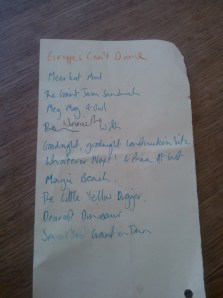 Giraffes Can't Dance
Meerkat Mail
The Giant Jam Sandwich
Meg Mog & Owl
Winnie The
Witch
Goodnight, goodnight Construction Site
Whatever Next! & Peace At Last
Magic Beach
The Little Yellow Digger
Dearest Dinosaur
Town